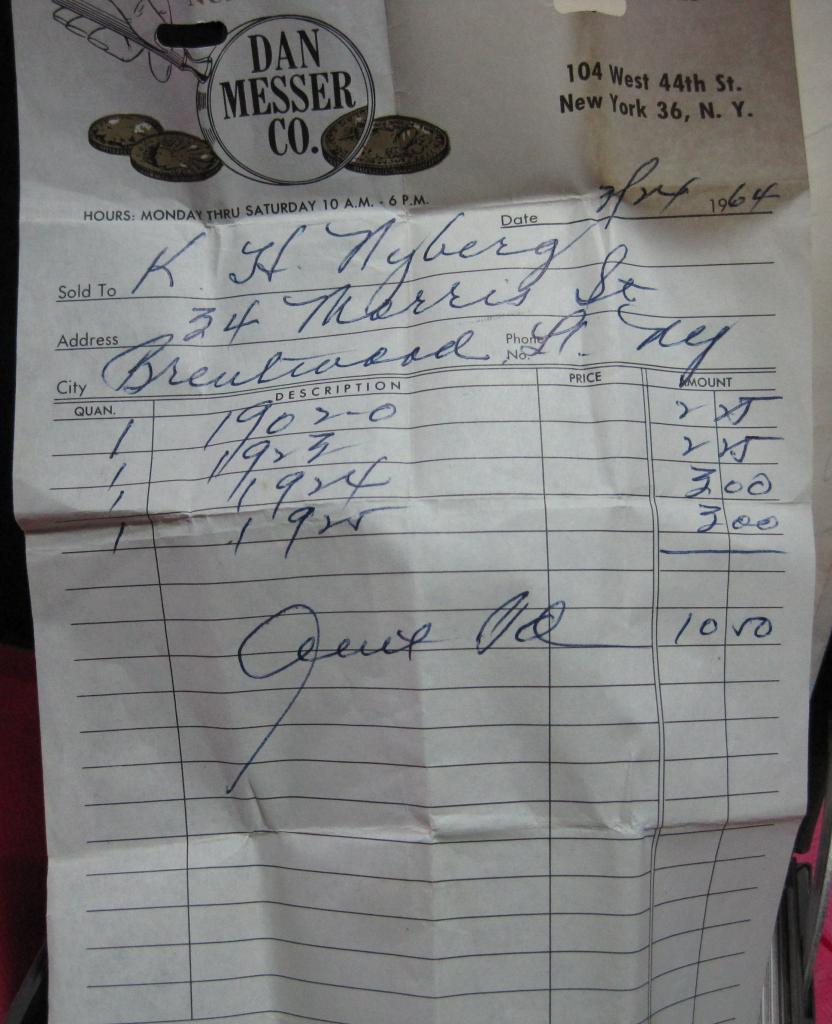 DAN
MESSER
CO.
104 West 44th St.
New York 36, N. Y.
HOURS: MONDAY THRU SATURDAY 10 A.M. - 6 P.M.
Date 3/24 1964
Sold To K H. Nyberg
Address 34 Morris St
City Brentwood Phone No. L.I. NY
QUAN. DESCRIPTION PRICE AMOUNT
1 1902-0 2 25
1 1923 2 25
1 1924 3 00
1 1925 3 00
Pd 10 50